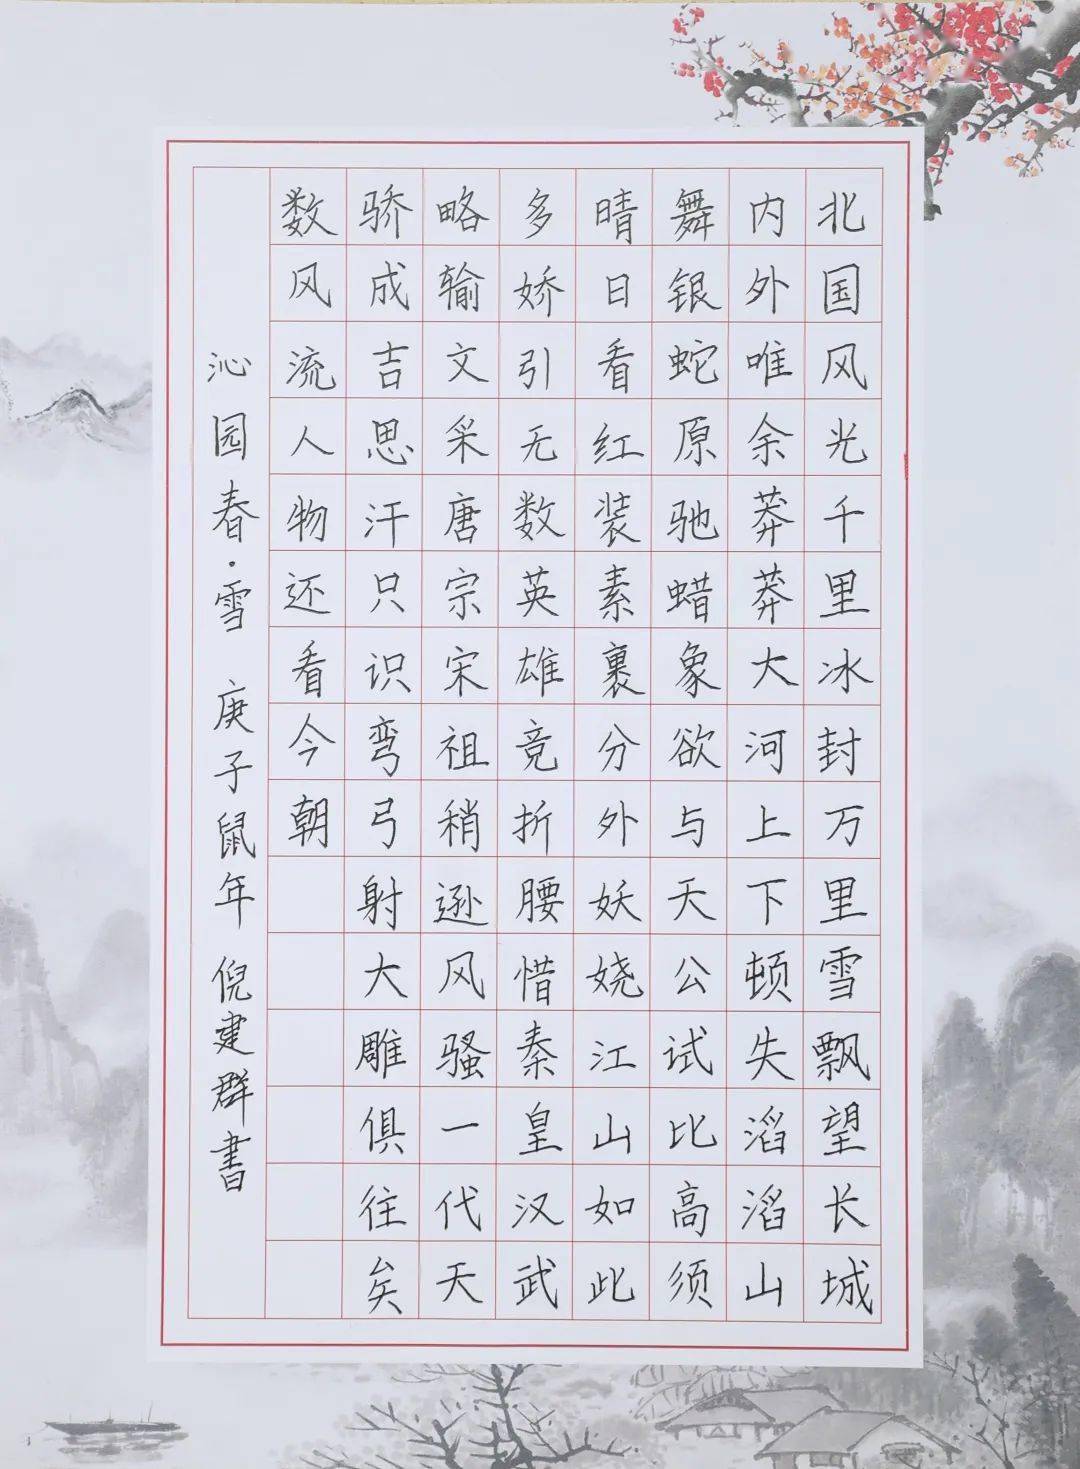 北国风光千里冰封万里雪飘望长城
内外唯余莽莽大河上下顿失滔滔山
舞银蛇原驰蜡象欲与天公试比高须
晴日看红装素裹分外妖娆江山如此
多娇引无数英雄竞折腰惜秦皇汉武
略输文采唐宗宋祖稍逊风骚一代天
骄成吉思汗只识弯弓射大雕俱往矣
数风流人物还看今朝
沁园春·雪 庚子鼠年 倪建群書